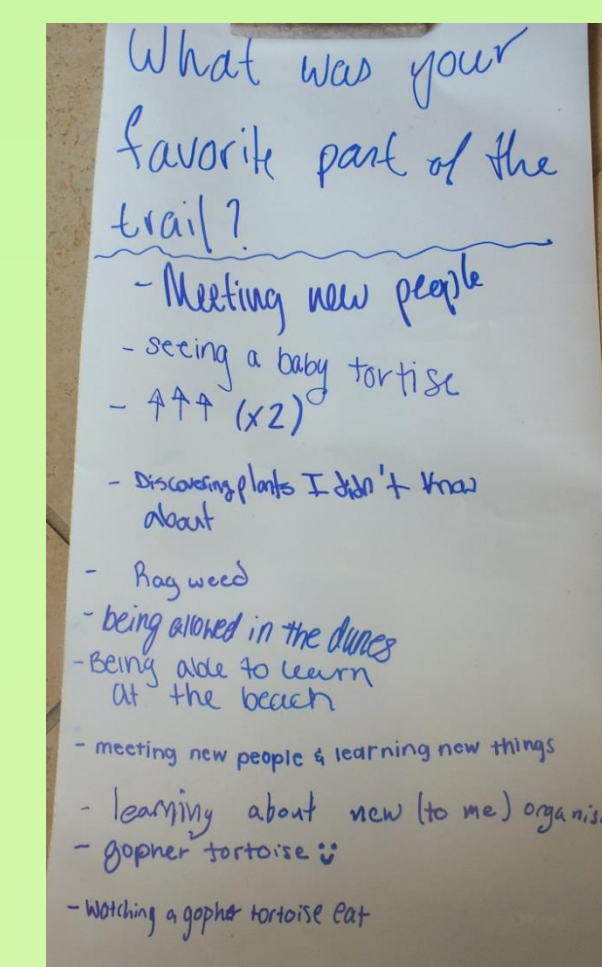 What was your
favorite part of the
trail?
- Meeting new people
- seeing a baby tortise
- ↑↑↑ (x2)
- Discovering plants I didn't know
about
- Rag weed
- being allowed in the dunes
- Being able to learn
at the beach
- meeting new people & learning new things
- learning about new (to me) organis
- gopher tortoise :)
- Watching a gopher tortoise eat